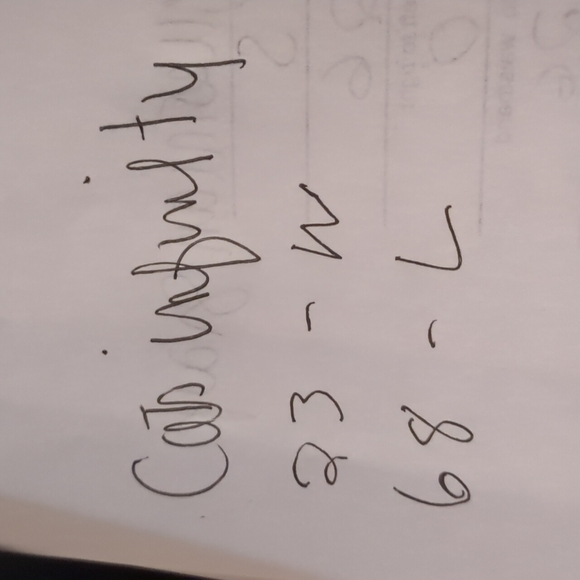 Cab infinity
23 - W
68 - L